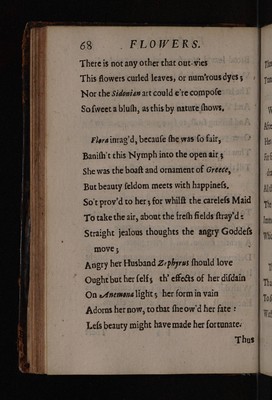 68 FLOWERS.
There is not any other that out-vies
This flowers curled leaves, or num'rous dyes;
Nor the Sidonian art could e're compose
So sweet a blush, as this by nature shows.
Flora inrag'd, because she was so fair,
Banish't this Nymph into the open air;
She was the boast and ornament of Greece,
But beauty seldom meets with happiness.
So't prov'd to her; for whilst the careless Maid
To take the air, about the fresh fields stray'd:
Straight jealous thoughts the angry Goddess
move;
Angry her Husband Zephyrus should love
Ought but her self; th' effects of her disdain
On Anemona light; her form in vain
Adorns her now, to that she ow'd her fate:
Less beauty might have made her fortunate.
Thus